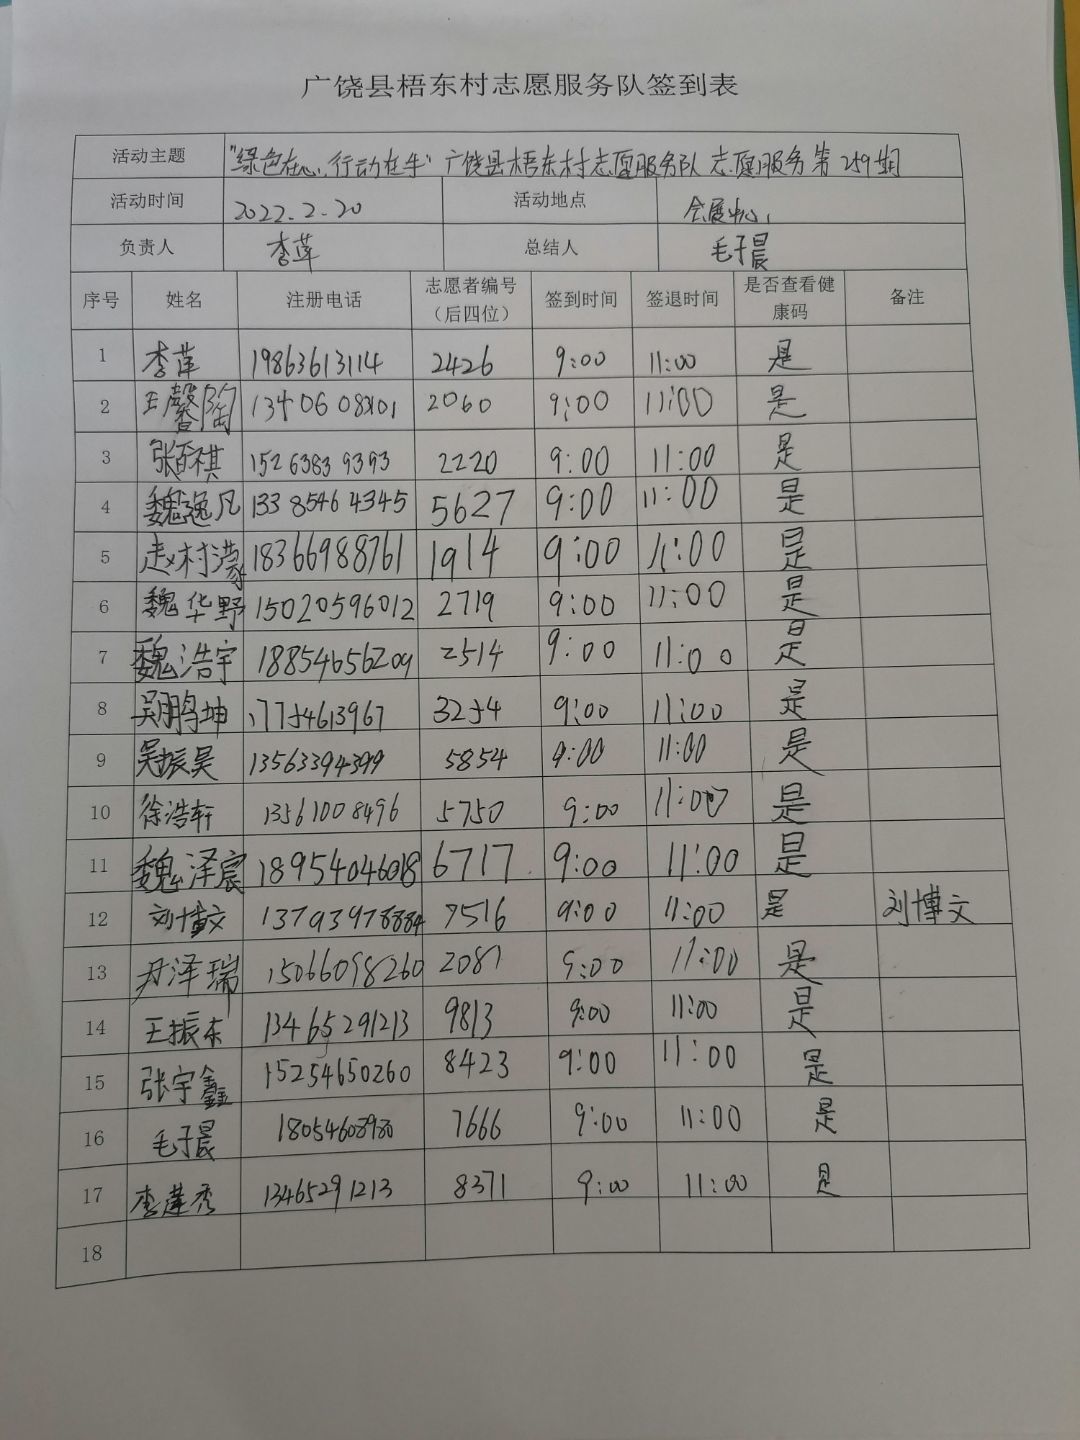 广饶县梧东村志愿服务队签到表
活动主题 "绿色在心,行动在手" 广饶县梧东村志愿服务队 志愿服务第259期
活动时间 2022.2.20 活动地点 会展中心
负责人 李莲 总结人 毛子晨
序号 姓名 注册电话 志愿者编号（后四位） 签到时间 签退时间 是否查看健康码 备注
1 李莲 19863613114 2426 9:00 11:00 是
2 王馨陶 2060 9:00 11:00 是
3 张栢祺 15263839393 2220 9:00 11:00 是
4 魏逸凡 13385464345 5627 9:00 11:00 是
5 赵村濛 18366988761 1914 9:00 11:00 是
6 魏华野 15020596012 2719 9:00 11:00 是
7 魏浩宇 18854656209 2514 9:00 11:00 是
8 吴鹏坤 17754613967 3254 9:00 11:00 是
9 吴振昊 13563394399 5854 9:00 11:00 是
10 徐浩轩 13561008496 5750 9:00 11:00 是
11 魏泽宸 18954046018 6717 9:00 11:00 是
12 刘博文 13793978884 7516 9:00 11:00 是 刘博文
13 泽瑞 15066098260 2081 9:00 11:00 是
14 王振东 13465291213 9813 9:00 11:00 是
15 张宇鑫 15254650260 8423 9:00 11:00 是
16 毛子晨 7666 9:00 11:00 是
17 李莲秀 13465291213 8371 9:00 11:00 是
18